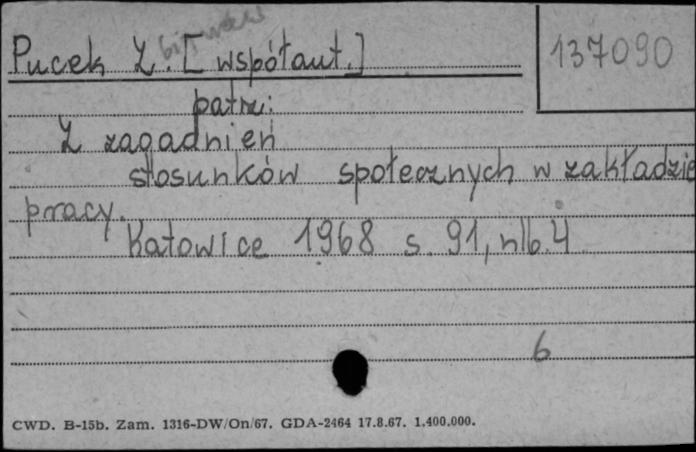 Pucek Z. [współaut.]
137090
patrz:
Z zagadnień
stosunków społecznych w zakładzie
pracy.
Katowice 1968 s. 91, nlb. 4
6
CWD. B-15b. Zam. 1316-DW/On/67. GDA-2464 17.8.67. 1.400.000.